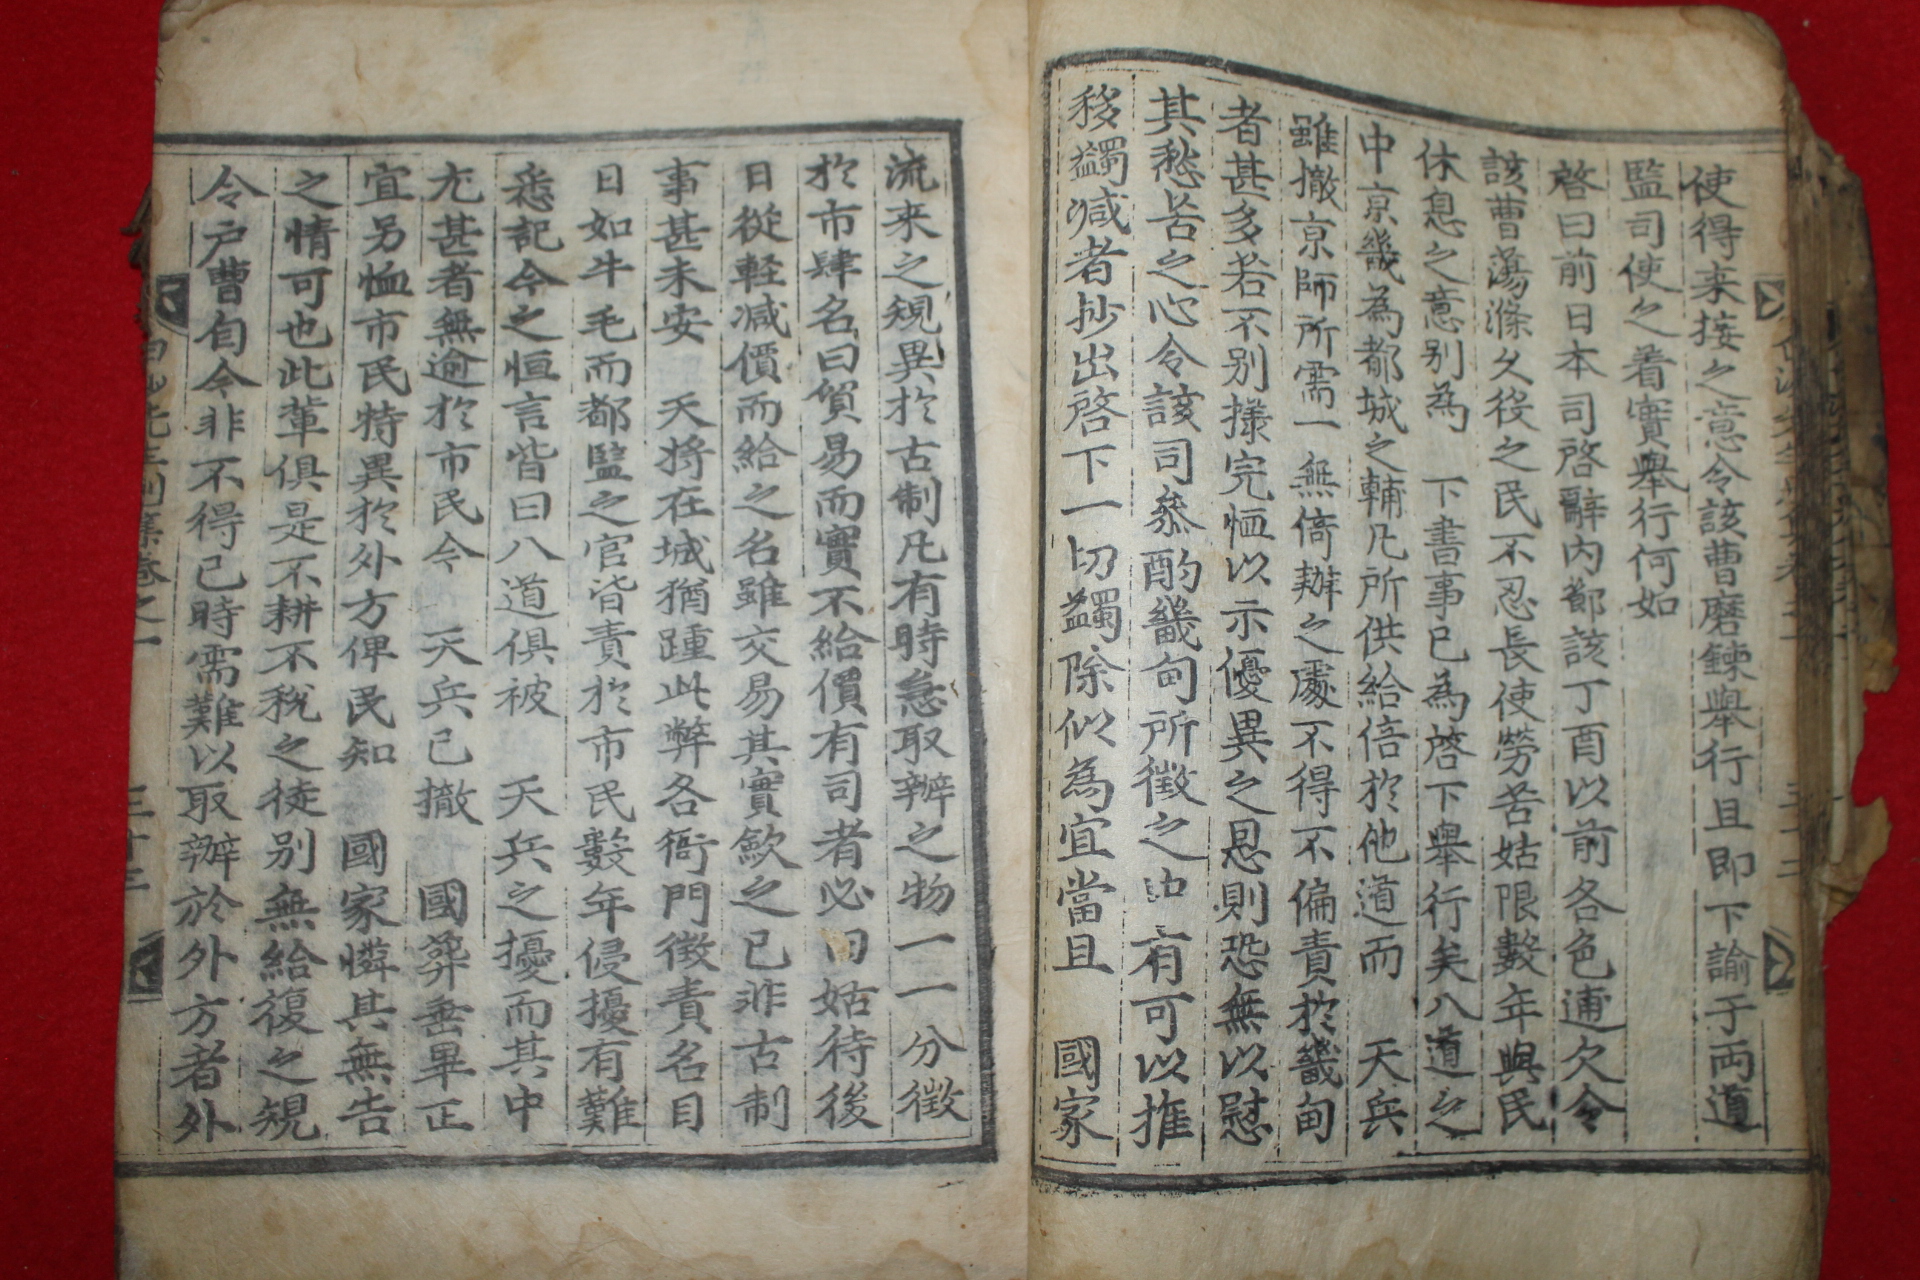 使得来接之意令該曹磨鍊舉行且即下諭于両道
監司使之着實舉行何如
啓曰前日本司啓辭内節該丁酉以前各色逋欠令
該曹蕩滌久役之民不忍長使勞苦姑限數年與民
休息之意別為　下書事已為啓下舉行矣八道之
中京畿為都城之輔凡所供給倍於他道而　天兵
雖撤京師所需一無倚辦之處不得不偏責於畿甸
者甚多若不别㨾完恤以示優異之恩則恐無以慰
其愁苦之心令該司叅酌畿甸所徵之中有可以推
移蠲减者抄出啓下一切蠲除似為宜當且　國家
流来之規異於古制凡有時急取辦之物一一分徵
於市肆名曰貿易而實不給價有司者必曰姑待後
日從軽减價而給之名雖交易其實歛之已非古制
事甚未安　天將在城猶踵此弊各衙門徵責名目
日如牛毛而都監之官皆責於市民數年侵擾有難
悉記今之恒言皆曰八道俱被　天兵之擾而其中
尤甚者無逾於市民今　天兵已撤　國葬垂畢正
宜另恤市民特異於外方俾民知　國家憐其無告
之情可也此輩俱是不耕不稅之徒别無給復之規
令户曹自今非不得已時需難以取辦於外方者外
白沙先生别集卷之一
三十三